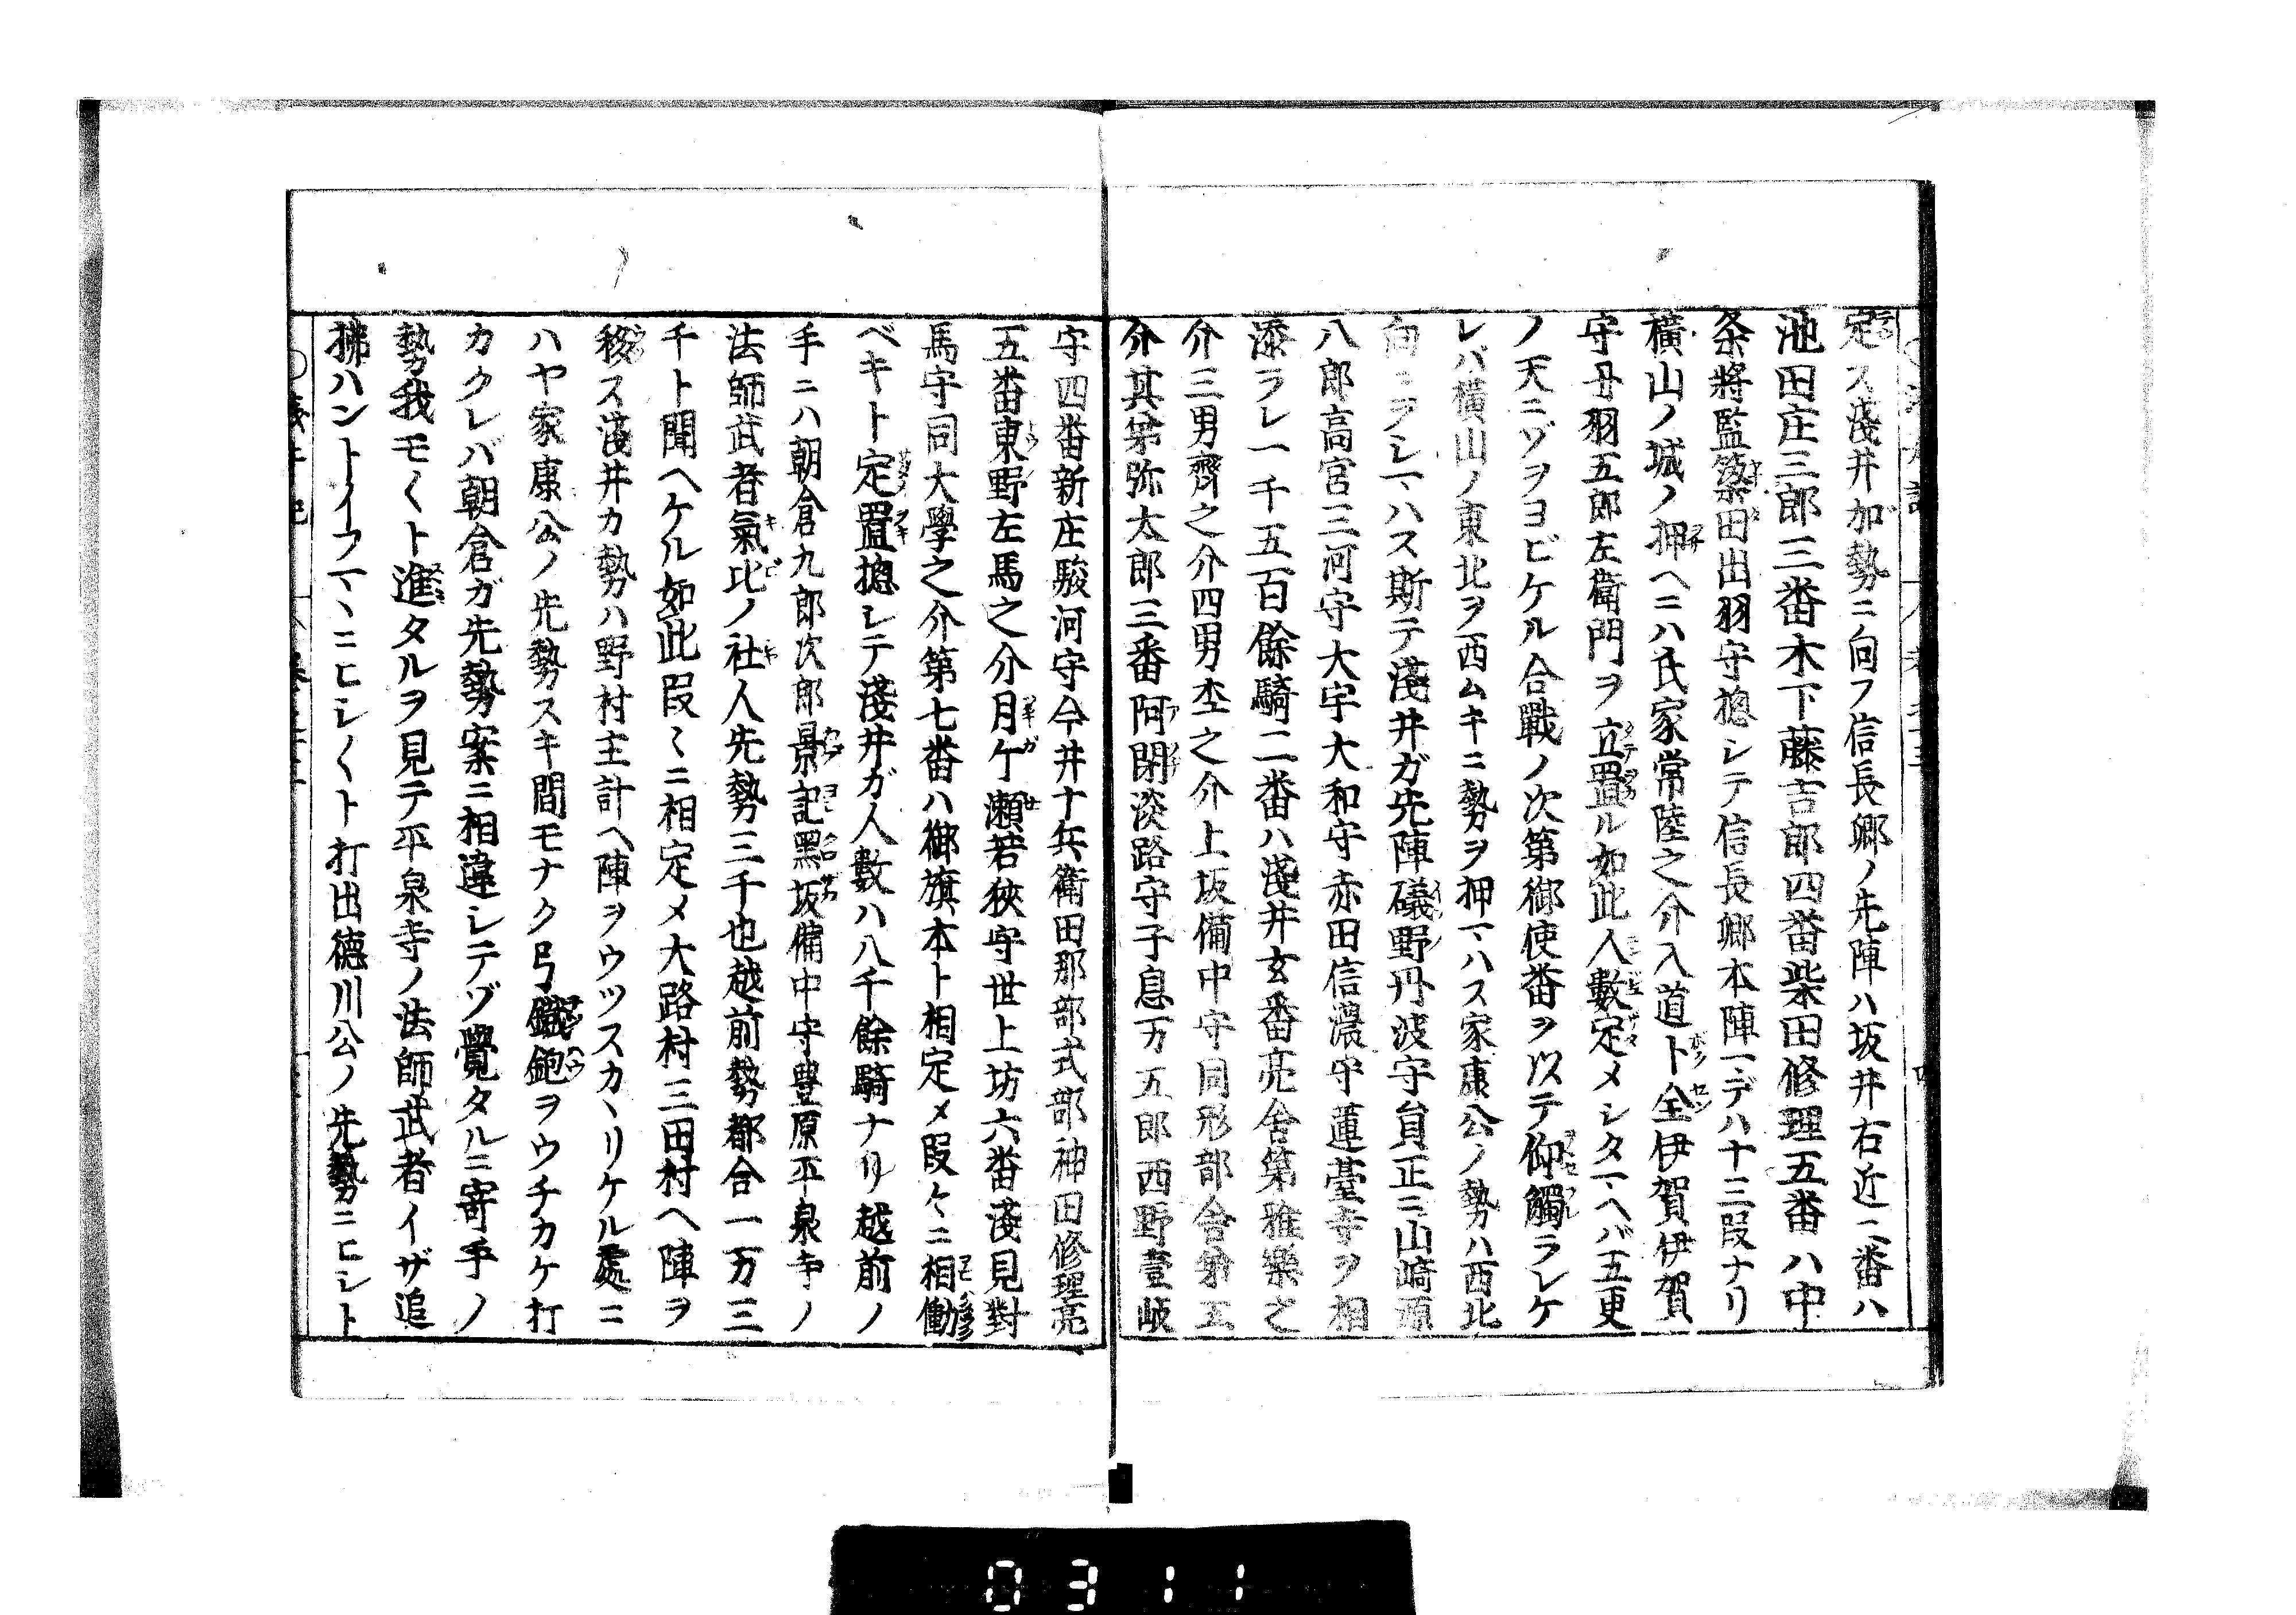 定ス淺井加勢ニ向フ信長郷ノ先陣ハ坂井右近二番ハ
池田庄三郎三番木下藤吉郎四番柴田修理五番ハ中
条將監簗田出羽守捴シテ信長郷本陣マデハ十三段ナリ
横山ノ城ノ押ヘニハ氏家常陸之介入道卜全伊賀伊賀
守丹羽五郎左衛門ヲ立置ル如此人數定メシタマヘバ五更
ノ天ニゾヲヨビケル合戰ノ次第御使番ヲ以テ仰觸ラレケ
レバ横山ノ東北ヲ西ムキニ勢ヲ押マハス家康公ノ勢ハ西北
向ニヲシマハス斯テ淺井ガ先陣礒野丹波守員正ニ山崎源
八郎高宮三河守大宇大和守赤田信濃守蓮臺寺ヲ相
添ラレ一千五百餘騎二番ハ淺井玄番亮舍第雅樂之
介三男齊之介四男杢之介上坂備中守同形部舍第五
介其第弥太郎三番阿閉淡路守子息万五郎西野壹岐
守四番新庄駿河守今井十兵衛田那部式部神田修理亮
五番東野左馬之介月ケ瀬若狹守世上坊六番淺見對
馬守同大學之介第七番ハ御旗本ト相定メ段々ニ相働
ベキト定置捴シテ淺井ガ人數ハ八千餘騎ナリ越前ノ
手ニハ朝倉九郎次郎景記黑坂備中守豊原平泉寺ノ
法師武者氣比ノ社人先勢三千也越前勢都合一万三
千ト聞ヘケル如此段〻ニ相定メ大路村三田村ヘ陣ヲ
移ス淺井カ勢ハ野村主計ヘ陣ヲウツスカヽリケル處ニ
ハヤ家康公ノ先勢スキ間モナク弓鐵鉋ヲウチカケ打
カクレバ朝倉ガ先勢案ニ相違シテゾ覺タルニ寄手ノ
勢我モ〱ト進タルヲ見テ平泉寺ノ法師武者イザ追
拂ハントイフマヽニヒシ〱ト打出徳川公ノ先勢ニヒシト
0311